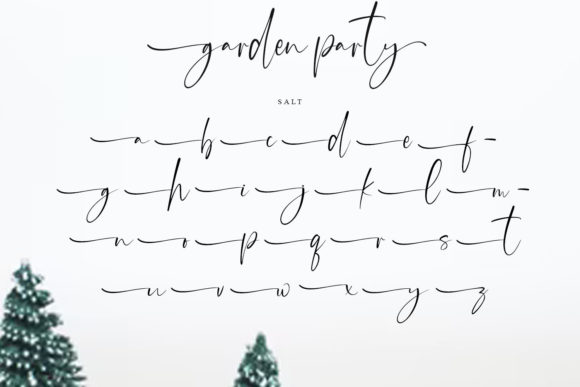 garden party
SALT
a b c d e f
g h i j k l m
n o p q r s t
u v w x y z